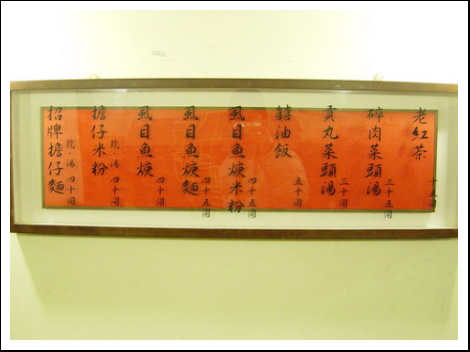 老紅茶 十五圓
碎肉菜頭湯 三十五圓
貢丸菜頭湯 三十圓
囍油飯 五十圓
虱目魚焿米粉 四十五圓
虱目魚焿麵 四十五圓
虱目魚焿 四十圓
擔仔米粉 乾、湯 四十圓
招牌擔仔麵 乾、湯 四十圓